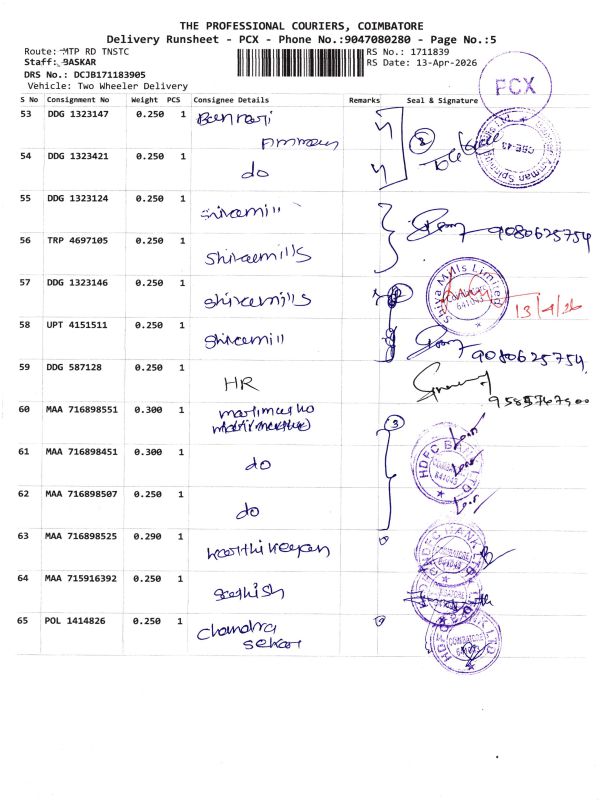 THE PROFESSIONAL COURIERS, COIMBATORE
Delivery Runsheet - PCX - Phone No.:9047080280 - Page No.:5
Route: MTP RD TNSTC
RS No.: 1711839
Staff: BASKAR
RS Date: 13-Apr-2026
DRS No.: DCJB171183905
Vehicle: Two Wheeler Delivery
PCX
S No Consignment No Weight PCS Consignee Details Remarks Seal & Signature
53 DDG 1323147 0.250 1 Bannari
Amman
2
54 DDG 1323421 0.250 1 do
55 DDG 1323124 0.250 1 shivamill
9080625754
56 TRP 4697105 0.250 1 shivamills
57 DDG 1323146 0.250 1 shivamills
Shiva Mills Limited
13/4/26
58 UPT 4151511 0.250 1 shivamill
9080625754
59 DDG 587128 0.250 1 HR
60 MAA 716898551 0.300 1
3
61 MAA 716898451 0.300 1 do
HDFC BANK LTD
COIMBATORE
641043
62 MAA 716898507 0.250 1 do
63 MAA 716898525 0.290 1 karthikeyan
HDFC BANK
COIMBATORE
641043
64 MAA 715916392 0.250 1 sathish
65 POL 1414826 0.250 1 chandra
sekar
HDFC BANK LTD
COIMBATORE